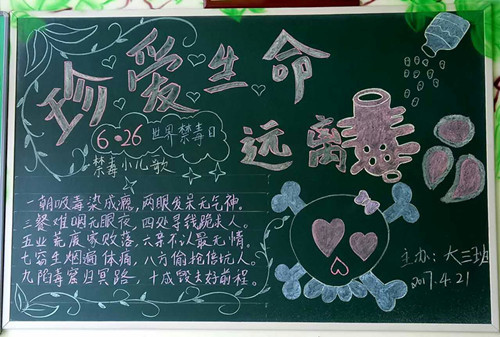 珍爱生命
远离毒
6·26 世界禁毒日
禁毒小儿歌
一朝吸毒染成瘾，两眼发呆无气神。
三餐难咽无眠夜 四处寻钱跪求人。
五业荒废家败落 六亲不认最无情。
七窍生烟 体痛，八方偷抢 人。
九陷毒窟归冥路，十成毁去好前程。
主办：大三班
2017.4.21